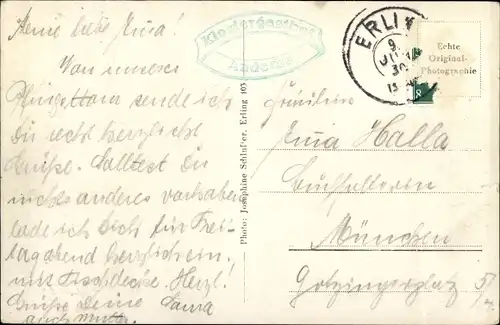 Meine liebe Erna!
Von unserer
Pfingsttour sende ich
Dir recht herzliche
Grüße. Solltest Du
nichts anderes vorhaben
lade ich Dich für Frei-
tagabend herzlich ein.
mit Tischdecke. Herzl.
Grüße Deine
auch Mutter.
Klostergasthof
Andechs
ERLI
9.
JUN
30
Echte
Original-
Photographie
Photo: Josephine Schlüter, Erling 105
Fräulein
Erna Halla
Buchhalterin
München
Gotzingerplatz